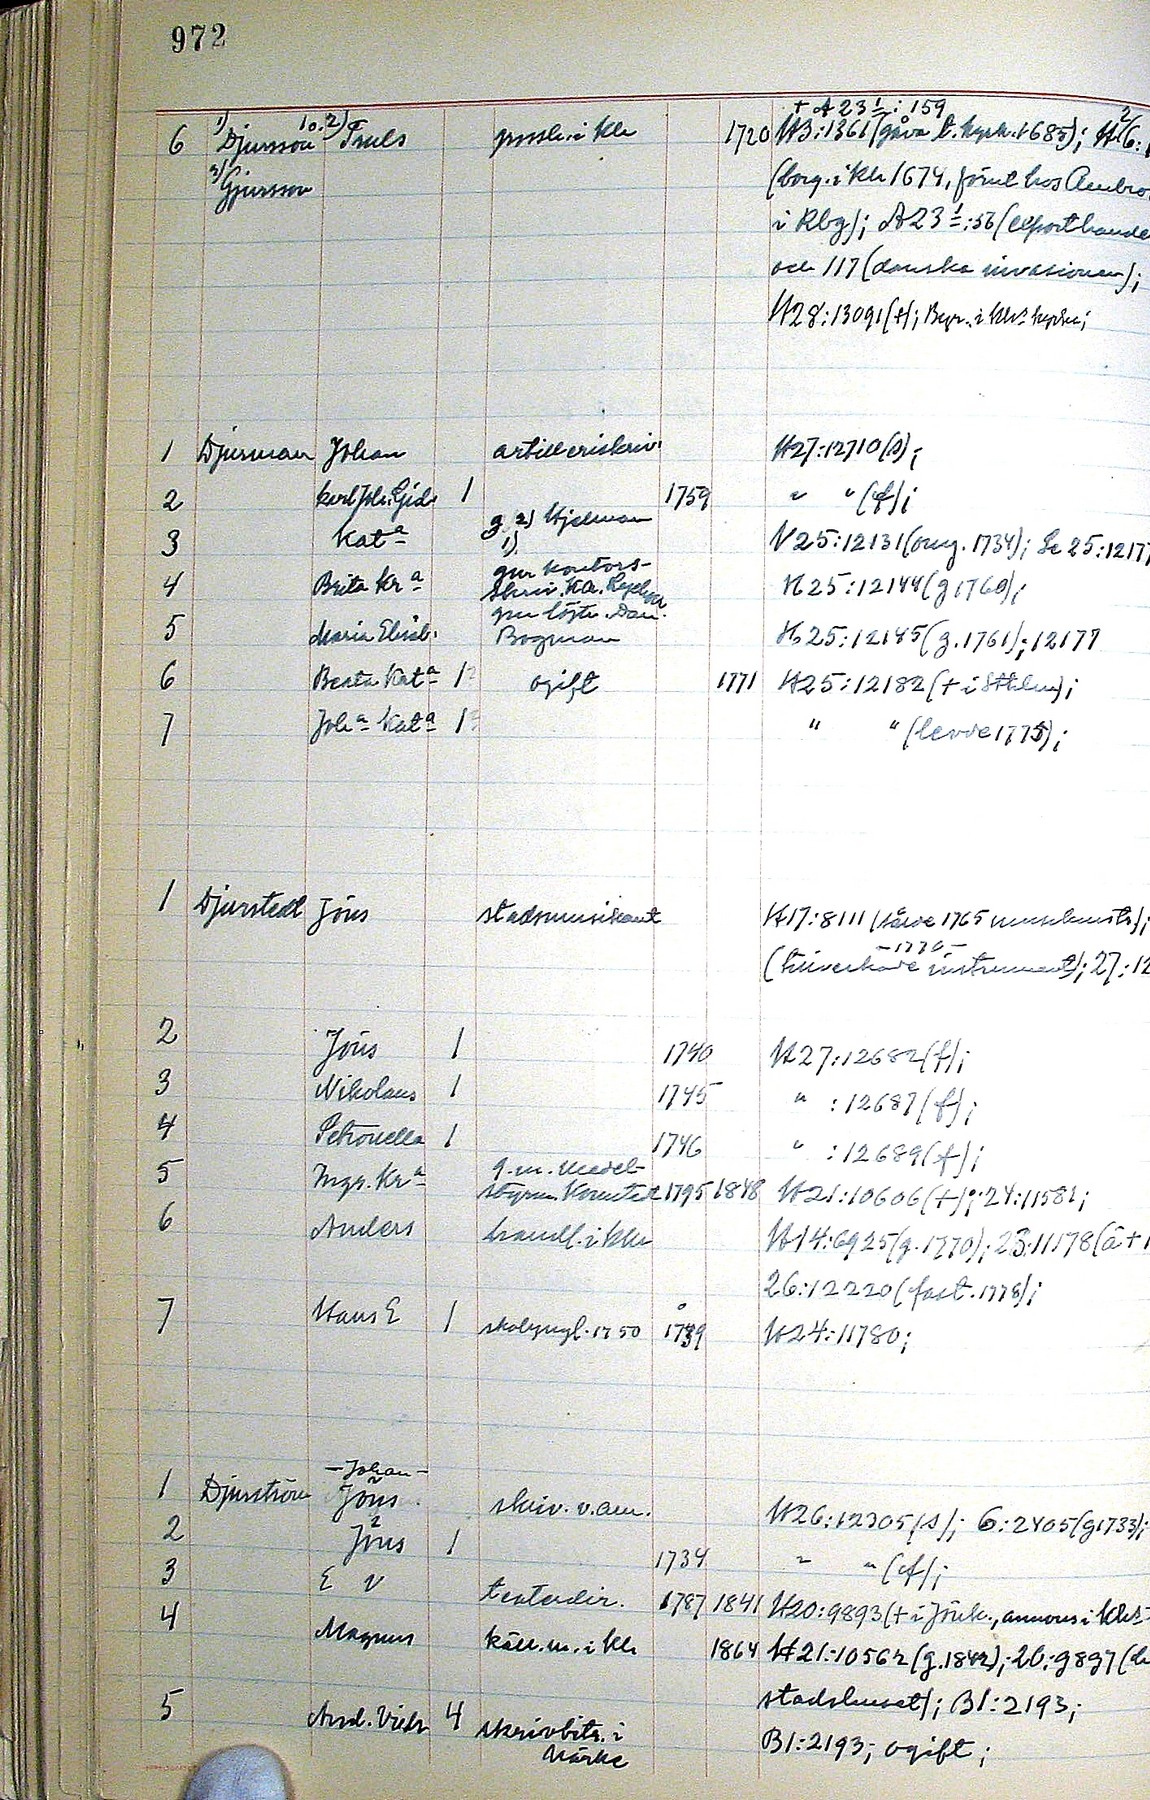 972
† A 23 1/: 159
6 1) Djursson 1o.2) Truls 1720 H3:1361 (gåva t. kyrk. 1685); H
2) Gjursson (borg. i Klr 1674, förut hos
i Rbg); A 23 1/:56
och 117 (danska invasionen);
H28:13091 (†); Begr. i Klrs kyrka;
1 Djurman Johan artilleriskriv. H27:12710 (s);
2 Karl Joh. Gid. 1 1759 " " (f);
3 Kata g. 2) Hjelman 1) V25:12131 (omg. 1734); Se 25:1217
4 Brita Kra gm kontors- skriv. H25:12144 (g 1760);
5 Maria Elisab. gm löjtn. Dan. Bogman H25:12145 (g. 1761); 12177
6 Beata Kata 1 ogift 1771 H25:12182 (+ i Sthlm);
7 Joha Kata 1 " " (levde 1775);
1 Djurstedt Jöns stadsmusikant H17:8111 (1765);
-1770-
(tillverkade instrument); 27:12
2 Jöns 1 1740 H27:12682 (f);
3 Nikolaus 1 1745 " :12687 (f);
4 Petronella 1 1746 " :12689 (f);
5 Ingr. Kra g.m. 1795 1848 H21:10606 (+); 24:11581;
6 Anders handl. i Klr H14:6925 (g. 1770); 23:11178
26:12220 (fast. 1778);
7 Hans E 1 skolyngl. 1750 1739 H24:11780;
-Johan-
1 Djurström Jöns skriv. v. am. H26:12305 (s); 6:2405 (g 1733);
2 Jöns 1 1734 " " (f);
3 E V teaterdir. 1787 1841 H20:9893 (+ i Jönk., annons i Klr
4 Magnus käll.m. i Klr 1864 H21:10562 (g. 1842); 20:9897
stadshuset); B1:2193;
5 And. Vilh 4 skrivbitr. i Närke B1:2193; ogift;